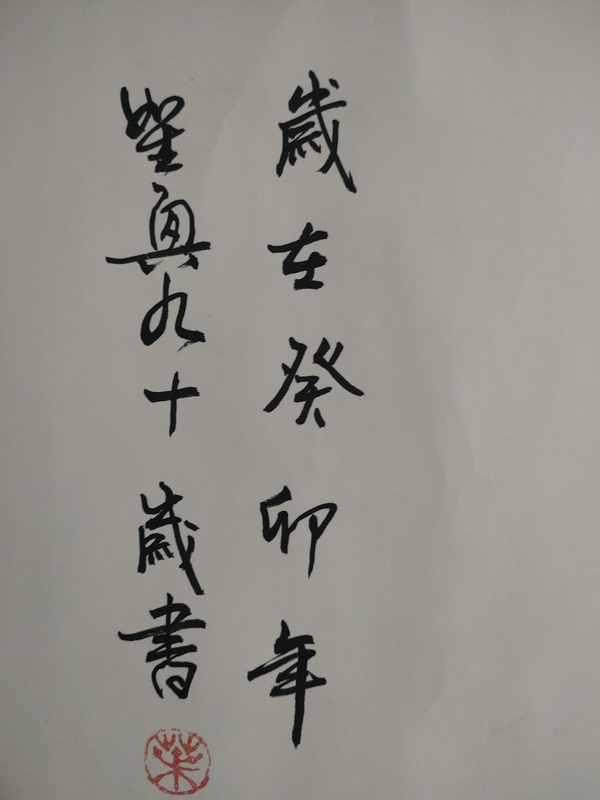 歲在癸卯年
聖真九十歲書